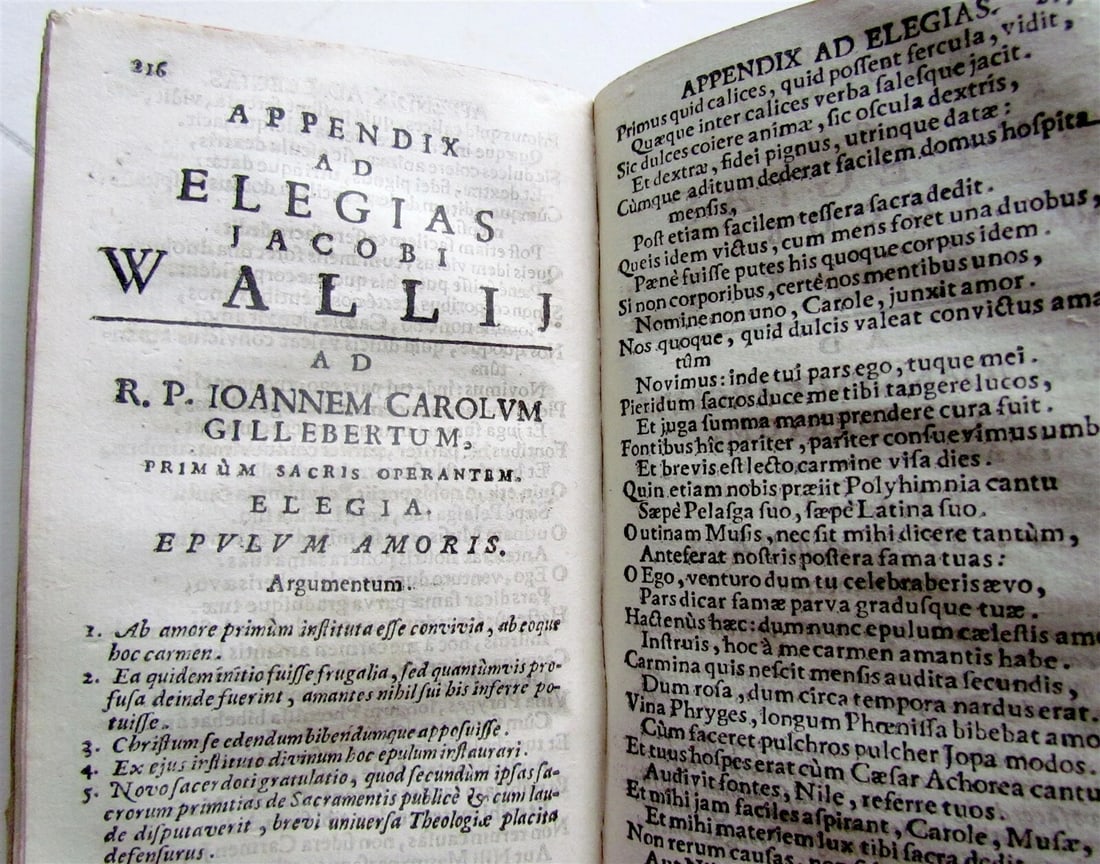 216
APPENDIX
AD
ELEGIAS
JACOBI
WALLIJ
AD
R. P. IOANNEM CAROLVM
GILLEBERTUM,
PRIMÙM SACRIS OPERANTEM.
ELEGIA.
EPVLVM AMORIS.
Argumentum.
1. Ab amore primùm inſtituta eſſe convivia, ab eoque
hoc carmen.
2. Ea quidem initio fuiſſe frugalia, ſed quantùmvis pro-
fuſa deinde fuerint, amantes nihil ſui his inferre po-
tuiſſe.
3. Chriſtum ſe edendum bibendumque appoſuiſſe.
4. Ex ejus inſtituto divinum hoc epulum inſtaurari.
5. Novo ſacerdoti gratulatio, quod ſecundùm ipſas ſa-
crorum primitias de Sacramentis publicè & cum lau-
de diſputaverit, brevi univerſa Theologiæ placita
defenſurus.
APPENDIX AD ELEGIAS.
Primus quid calices, quid poſſent fercula, vidit,
Quæque inter calices verba ſaleſque jacit.
Sic dulces coiere animæ, ſic oſcula dextris,
Et dextræ, fidei pignus, utrinque datæ:
Cùmque aditum dederat facilem domus hoſpita
menſis,
Poſt etiam facilem teſſera ſacra dedit.
Queis idem victus, cum mens foret una duobus,
Pænè fuiſſe putes his quoque corpus idem.
Si non corporibus, certè nos mentibus unos,
Nomine non uno, Carole, junxit amor.
Nos quoque, quid dulcis valeat convictus aman
tûm
Novimus: inde tui pars ego, tuque mei.
Pieridum ſacros duce me tibi tangere lucos,
Et juga ſumma manu prendere cura fuit.
Fontibus hîc pariter, pariter conſuevimus umb
Et brevis eſt lecto carmine viſa dies.
Quin etiam nobis præiit Polyhimnia cantu
Sæpè Pelaſga ſuo, ſæpè Latina ſuo.
O utinam Muſis, nec ſit mihi dicere tantùm,
Anteferat noſtris poſtera fama tuas:
O Ego, venturo dum tu celebraberis ævo,
Pars dicar famæ parva graduſque tuæ.
Hactenùs hæc: dum nunc epulum cæleſtis amo
Inſtruis, hoc à me carmen amantis habe.
Carmina quis neſcit menſis audita ſecundis,
Dum roſa, dum circa tempora nardus erat.
Vina Phryges, longum Phœniſſa bibebat amo
Cùm faceret pulchros pulcher Jopa modos.
Et tuus hoſpes erat cùm Cæſar Achorea cantu
Audivit fontes, Nile, referre tuos.
Et mihi jam faciles aſpirant, Carole, Muſæ,
Et mihi materiem lux tibi ſacra
Non rerum cauſas,